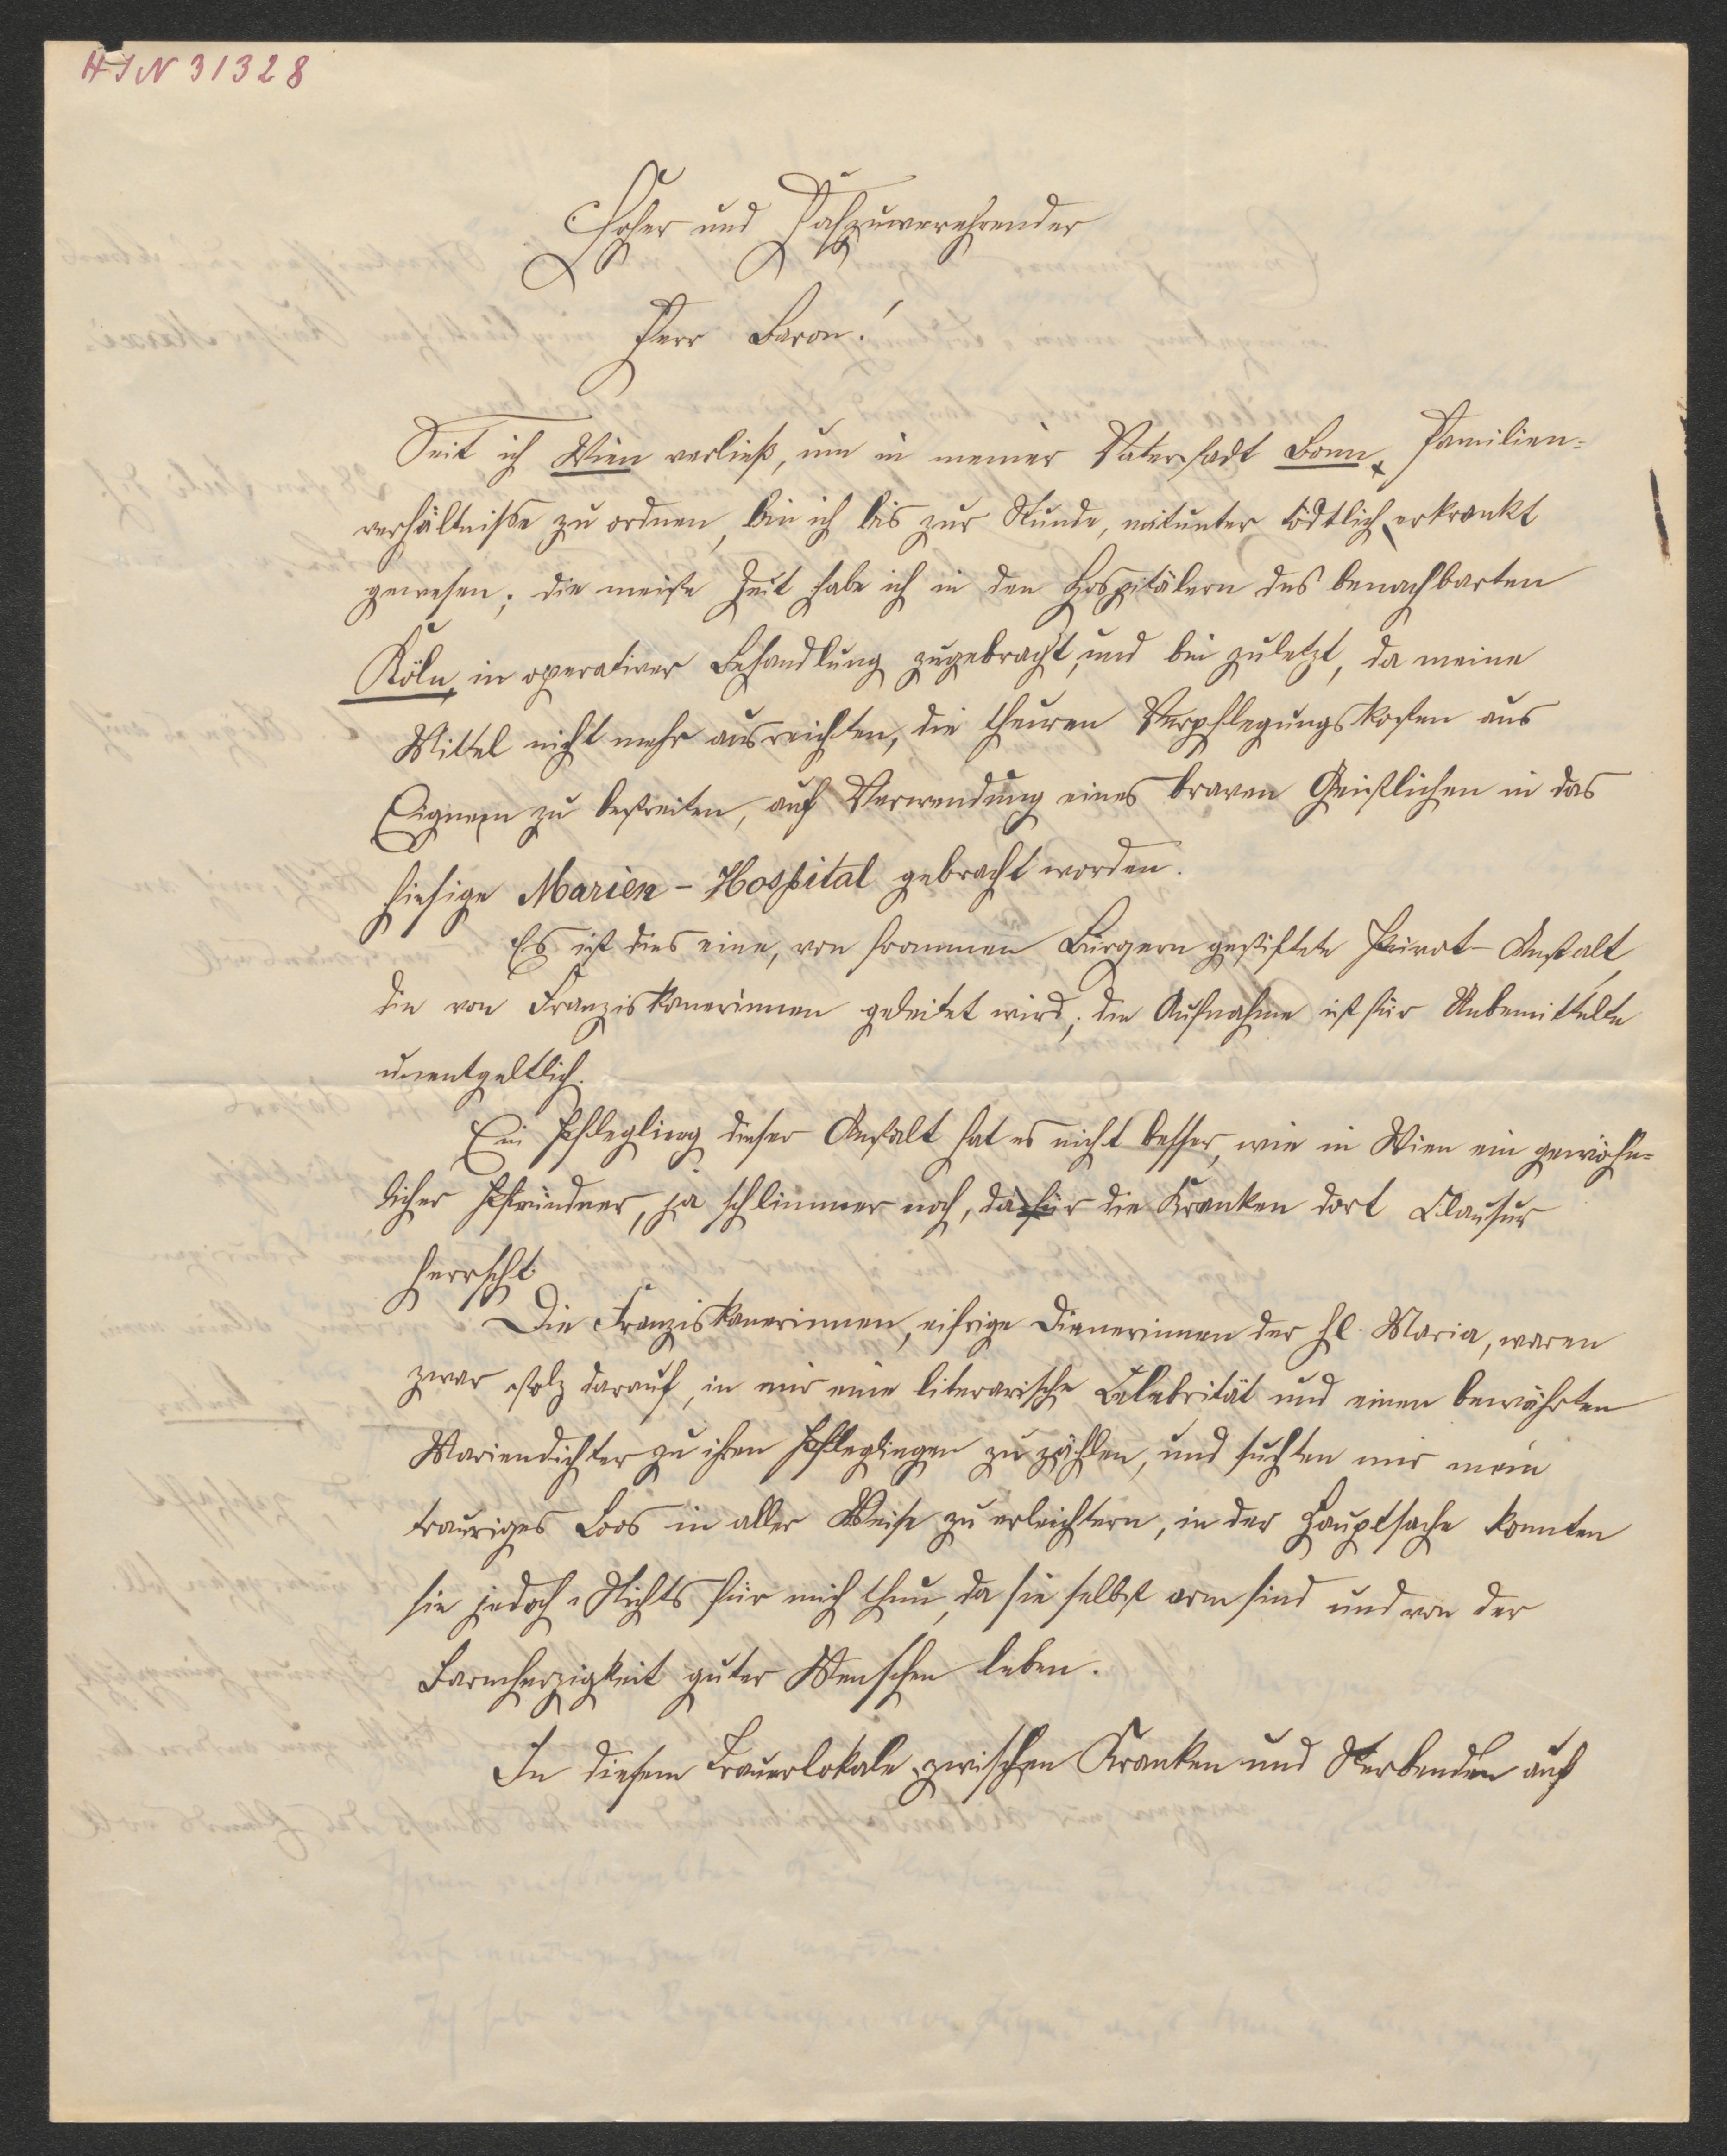 HIN 31328
Hoher und Hochzuverehrender
Herr Baron!
Seit ich Wien verließ, um in meiner Vaterstadt Bonn, Familien-
verhältniße zu ordnen, bin ich bis zur Stunde, mitunter tödtlich, erkrankt
gewesen; die meiste Zeit habe ich in den Hospitälern des benachbarten
Köln, in operativer Behandlung zugebracht, und bin zuletzt, da meine
Mittel nicht mehr ausreichten, die theuren Verpflegungskosten aus
Eignem zu bestreiten, auf Verwendung eines braven Geistlichen in das
hiesige Marien-Hospital gebracht worden.
Es ist dies eine, von frommen Bürgern gestiftete Privat-Anstalt,
die von Franziskanerinnen geleitet wird; die Aufnahme ist für Unbemittelte
unentgeltlich.
Ein Pflegling dieser Anstalt hat es nicht besser, wie in Wien ein gewöhn-
licher Pfründner, ja schlimmer noch, da für die Kranken dort Clausur
herrscht.
Die Franziskanerinnen, eifrige Dienerinnen der hl. Maria, waren
zwar stolz darauf, in mir eine literarische Celebrität und einen bewährten
Mariendichter zu ihren Pfleglingen zu zählen, und suchten mir mein
trauriges Loos in aller Weise zu erleichtern, in der Hauptsache konnten
sie jedoch Nichts für mich thun, da sie selbst arm sind und von der
Barmherzigkeit guter Menschen leben.
In diesem Trauerlokale, zwischen Kranken und Sterbenden auf